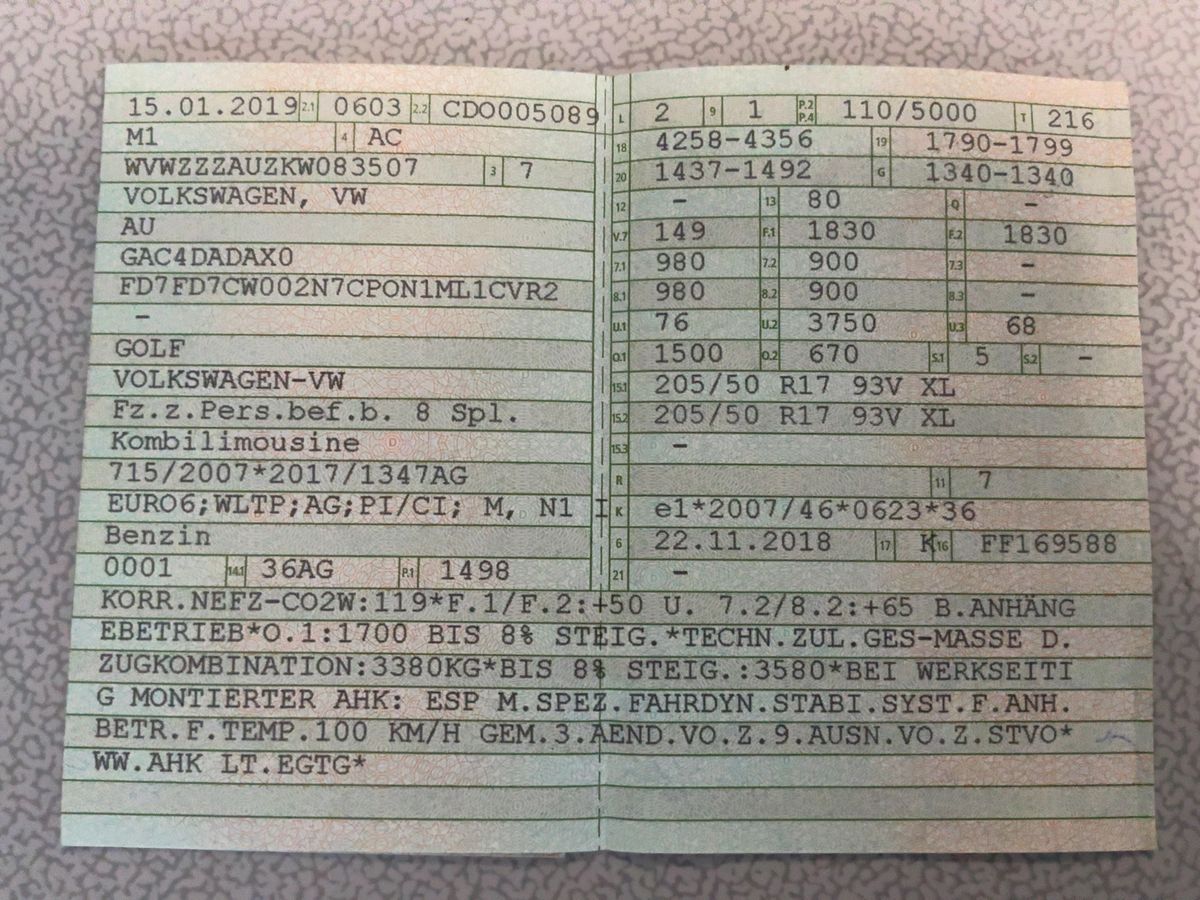 15.01.2019 2.1 0603 2.2 CDO005089
M1 4 AC
WVWZZZAUZKW083507 3 7
VOLKSWAGEN, VW
AU
GAC4DADAX0
FD7FD7CW002N7CPON1ML1CVR2
–
GOLF
VOLKSWAGEN-VW
Fz.z.Pers.bef.b. 8 Spl.
Kombilimousine
715/2007*2017/1347AG
EURO6;WLTP;AG;PI/CI; M, N1 I
Benzin
0001 14.1 36AG P.1 1498
L 2 9 1 P.2 P.4 110/5000 T 216
18 4258-4356 19 1790-1799
20 1437-1492 G 1340-1340
12 – 13 80 Q –
V.7 149 F.1 1830 F.2 1830
7.1 980 7.2 900 7.3 –
8.1 980 8.2 900 8.3 –
U.1 76 U.2 3750 U.3 68
O.1 1500 O.2 670 S.1 5 S.2 –
15.1 205/50 R17 93V XL
15.2 205/50 R17 93V XL
15.3 –
R 11 7
K e1*2007/46*0623*36
6 22.11.2018 17 K 16 FF169588
21 –
KORR.NEFZ-CO2W:119*F.1/F.2:+50 U. 7.2/8.2:+65 B.ANHÄNG
EBETRIEB*O.1:1700 BIS 8% STEIG.*TECHN.ZUL.GES-MASSE D.
ZUGKOMBINATION:3380KG*BIS 8% STEIG.:3580*BEI WERKSEITI
G MONTIERTER AHK: ESP M.SPEZ.FAHRDYN.STABI.SYST.F.ANH.
BETR.F.TEMP.100 KM/H GEM.3.AEND.VO.Z.9.AUSN.VO.Z.STVO*
WW.AHK LT.EGTG*